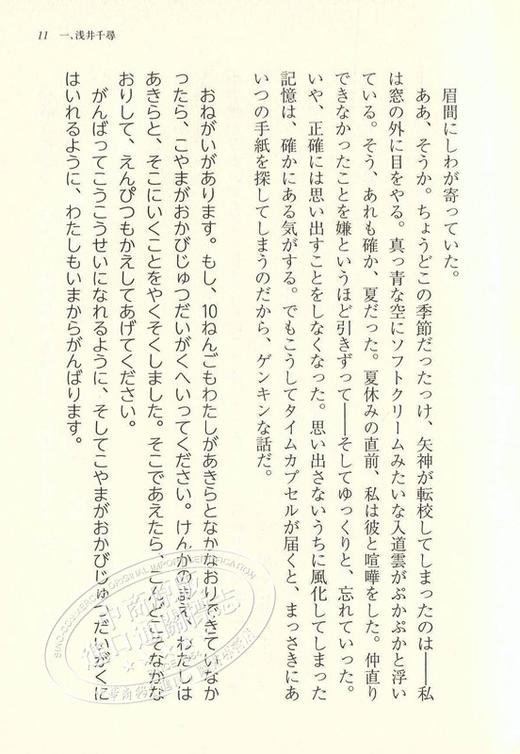 11 一、浅井千尋
眉間にしわが寄っていた。
ああ、そうか。ちょうどこの季節だったっけ、矢神が転校してしまったのは――私
は窓の外に目をやる。真っ青な空にソフトクリームみたいな入道雲がぷかぷかと浮い
ている。そう、あれも確か、夏だった。夏休みの直前、私は彼と喧嘩をした。仲直り
できなかったことを嫌というほど引きずって――そしてゆっくりと、忘れていった。
いや、正確には思い出すことをしなくなった。思い出さないうちに風化してしまった
記憶は、確かにある気がする。でもこうしてタイムカプセルが届くと、まっさきにあ
いつの手紙を探してしまうのだから、ゲンキンな話だ。
おねがいがあります。もし、10ねんごもわたしがあきらとなかなおりできていなか
ったら、こやまがおかびじゅつだいがくへいってください。けんかのまえ、わたしは
あきらと、そこにいくことをやくそくしました。そこであえたら、こんどこそなかな
おりして、えんぴつもかえしてあげてください。
がんばってこうこうせいになれるように、そしてこやまがおかびじゅつだいがくに
はいれるように、わたしもいまからがんばります。